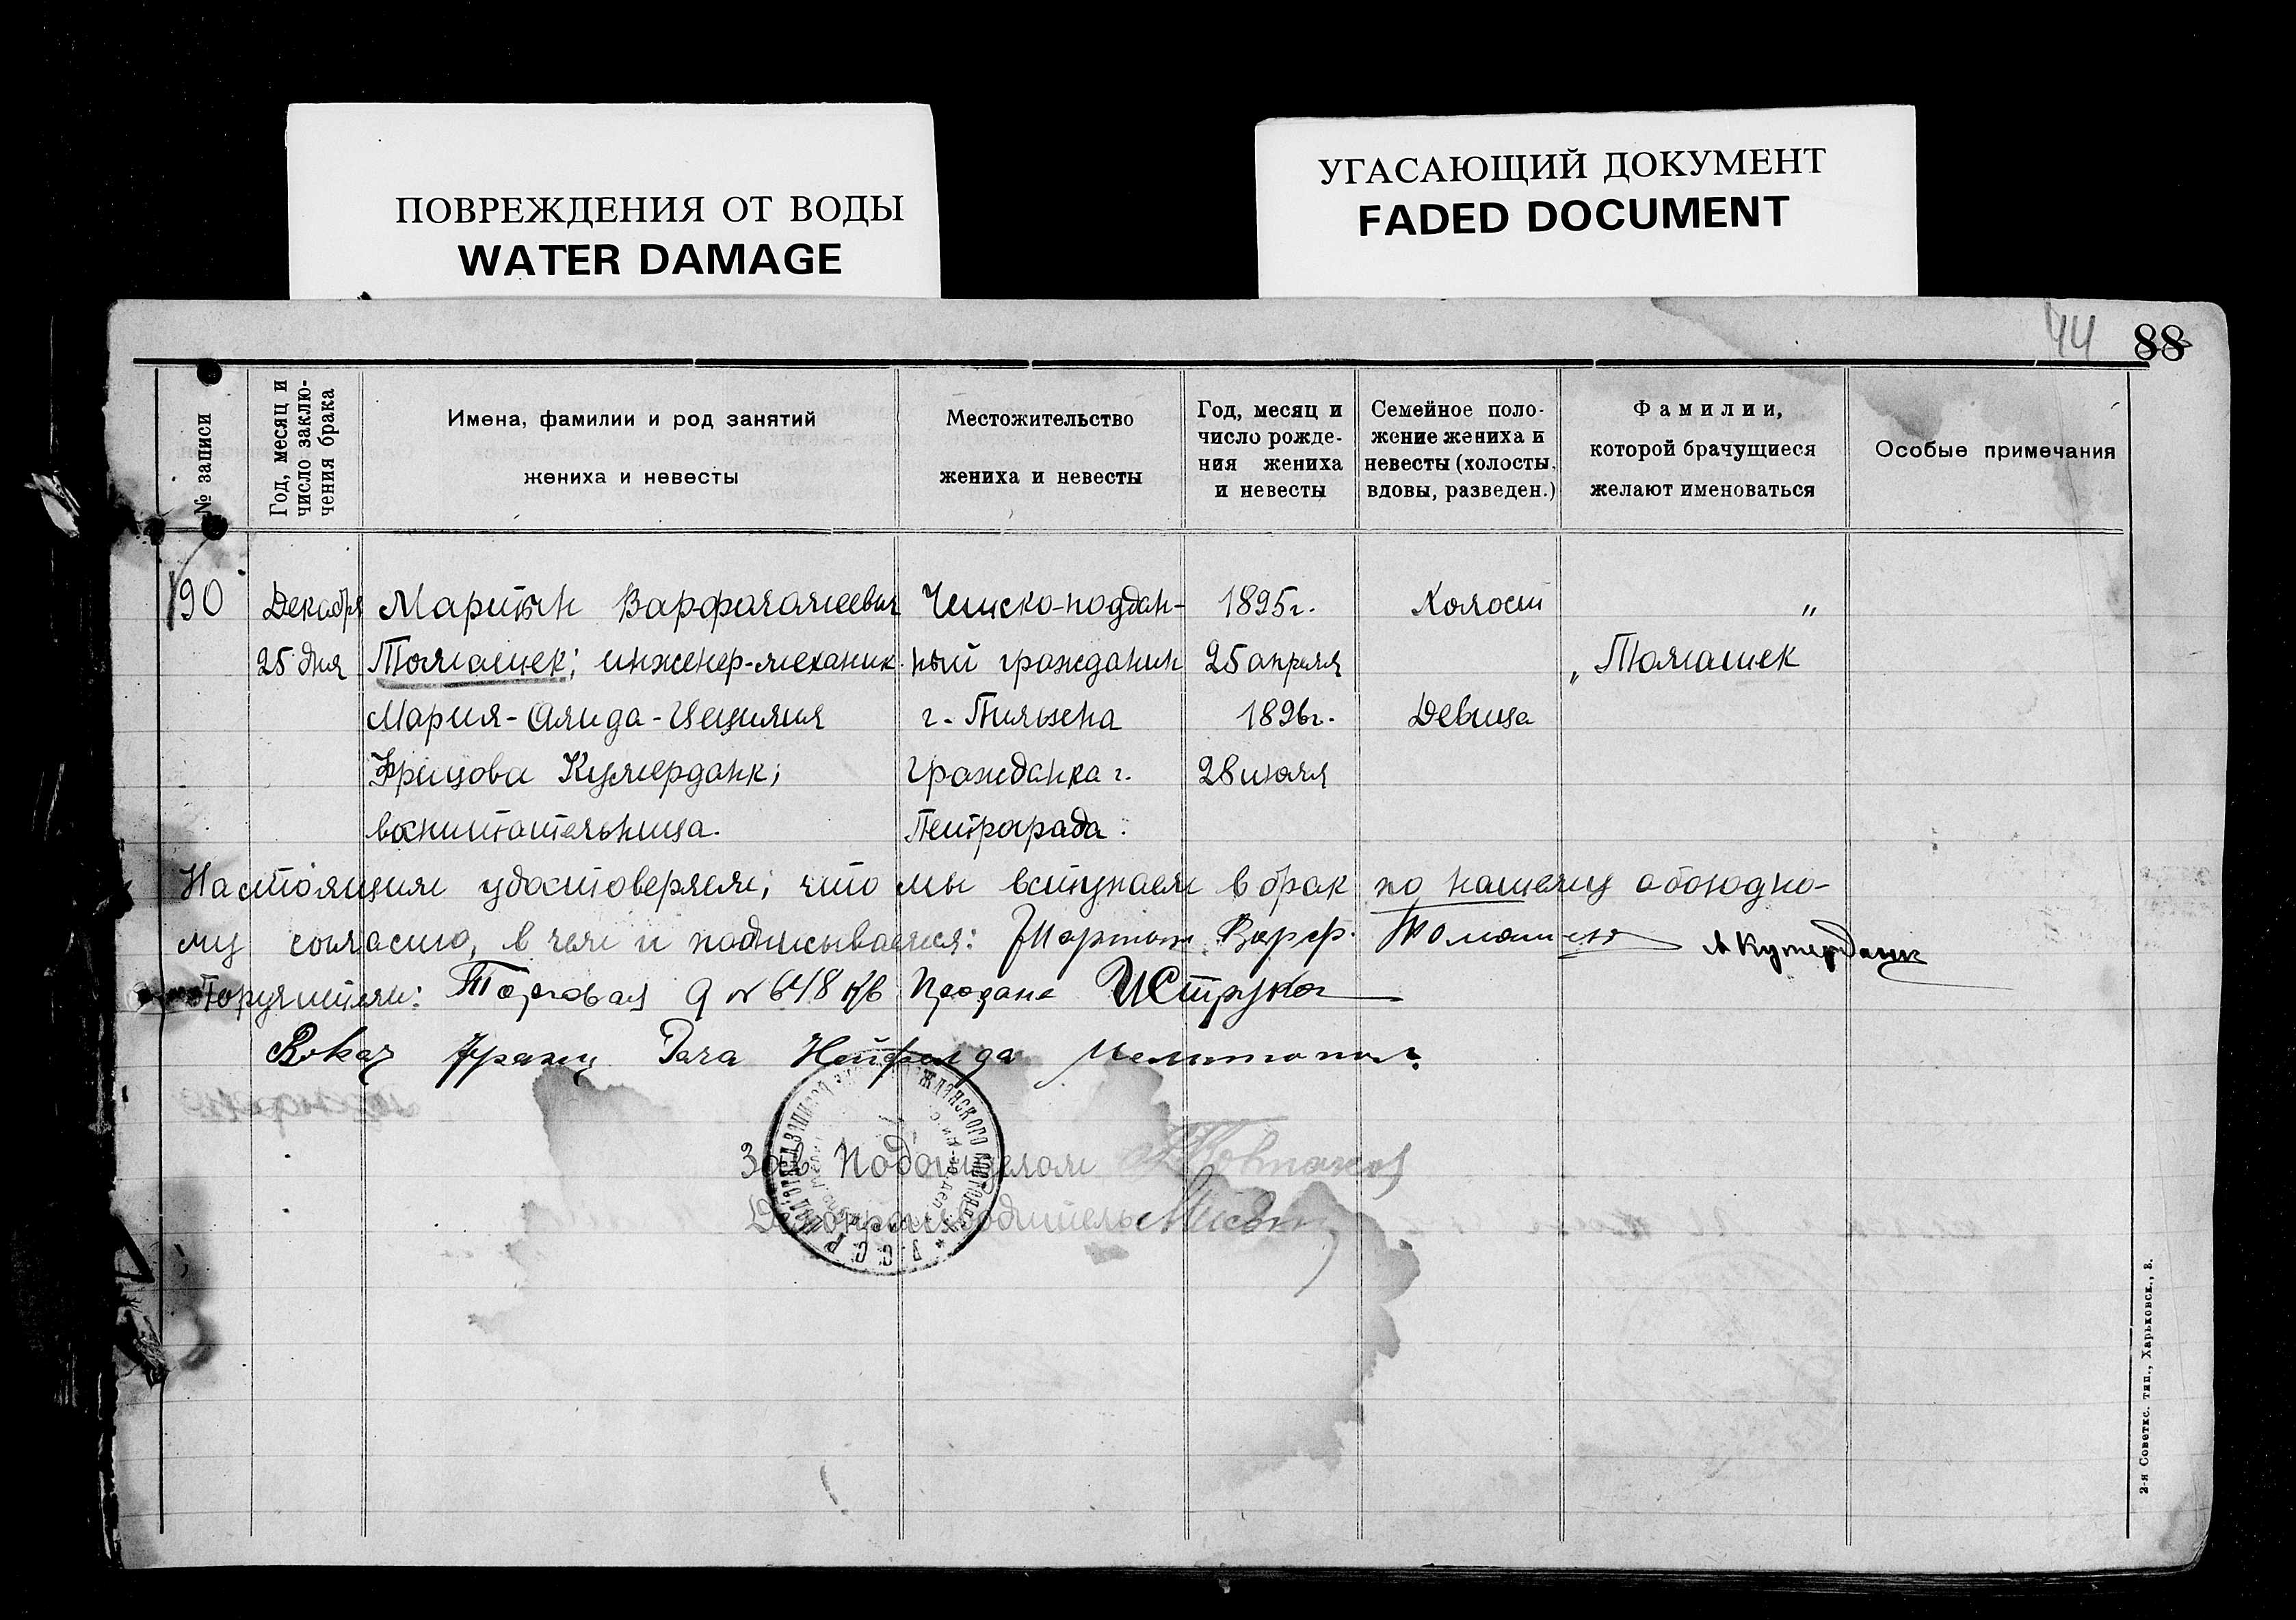 ПОВРЕЖДЕНИЯ ОТ ВОДЫ
WATER DAMAGE
УГАСАЮЩИЙ ДОКУМЕНТ
FADED DOCUMENT
44 88
№ записи
Год, месяц и
число заклю-
чения брака
Имена, фамилии и род занятий
жениха и невесты
Местожительство
жениха и невесты
Год, месяц и
число рожде-
ния жениха
и невесты
Семейное поло-
жение жениха и
невесты (холосты,
вдовы, разведен.)
Фамилии,
которой брачущиеся
желают именоваться
Особые примечания
190
Декабря
25 дня
Мартын Варфоломеевич
Томашек; инженер-механик.
Мария-Алида-Цецилия
Фрицова Кумерданк;
воспитательница.
Чешско-поддан-
ный гражданин
г. Пильзена
Гражданка г.
Петрограда.
1895г.
25 апреля
1896г.
28 июля
Холост
Девица
„
„ Томашек
Настоящим удостоверяем; что мы вступаем в брак по нашему обоюдно-
му согласию, в чем и подписываемся: Мартын Варф. Томашек А Кумерданк
Поручители: Торговая 9 № 648 кв
Франц Нейфельда Мелитополь.
Зав. Подотделом
Делопроизводитель
У.С.С.Р
2-я Советск. тип., Харьковск., 8.